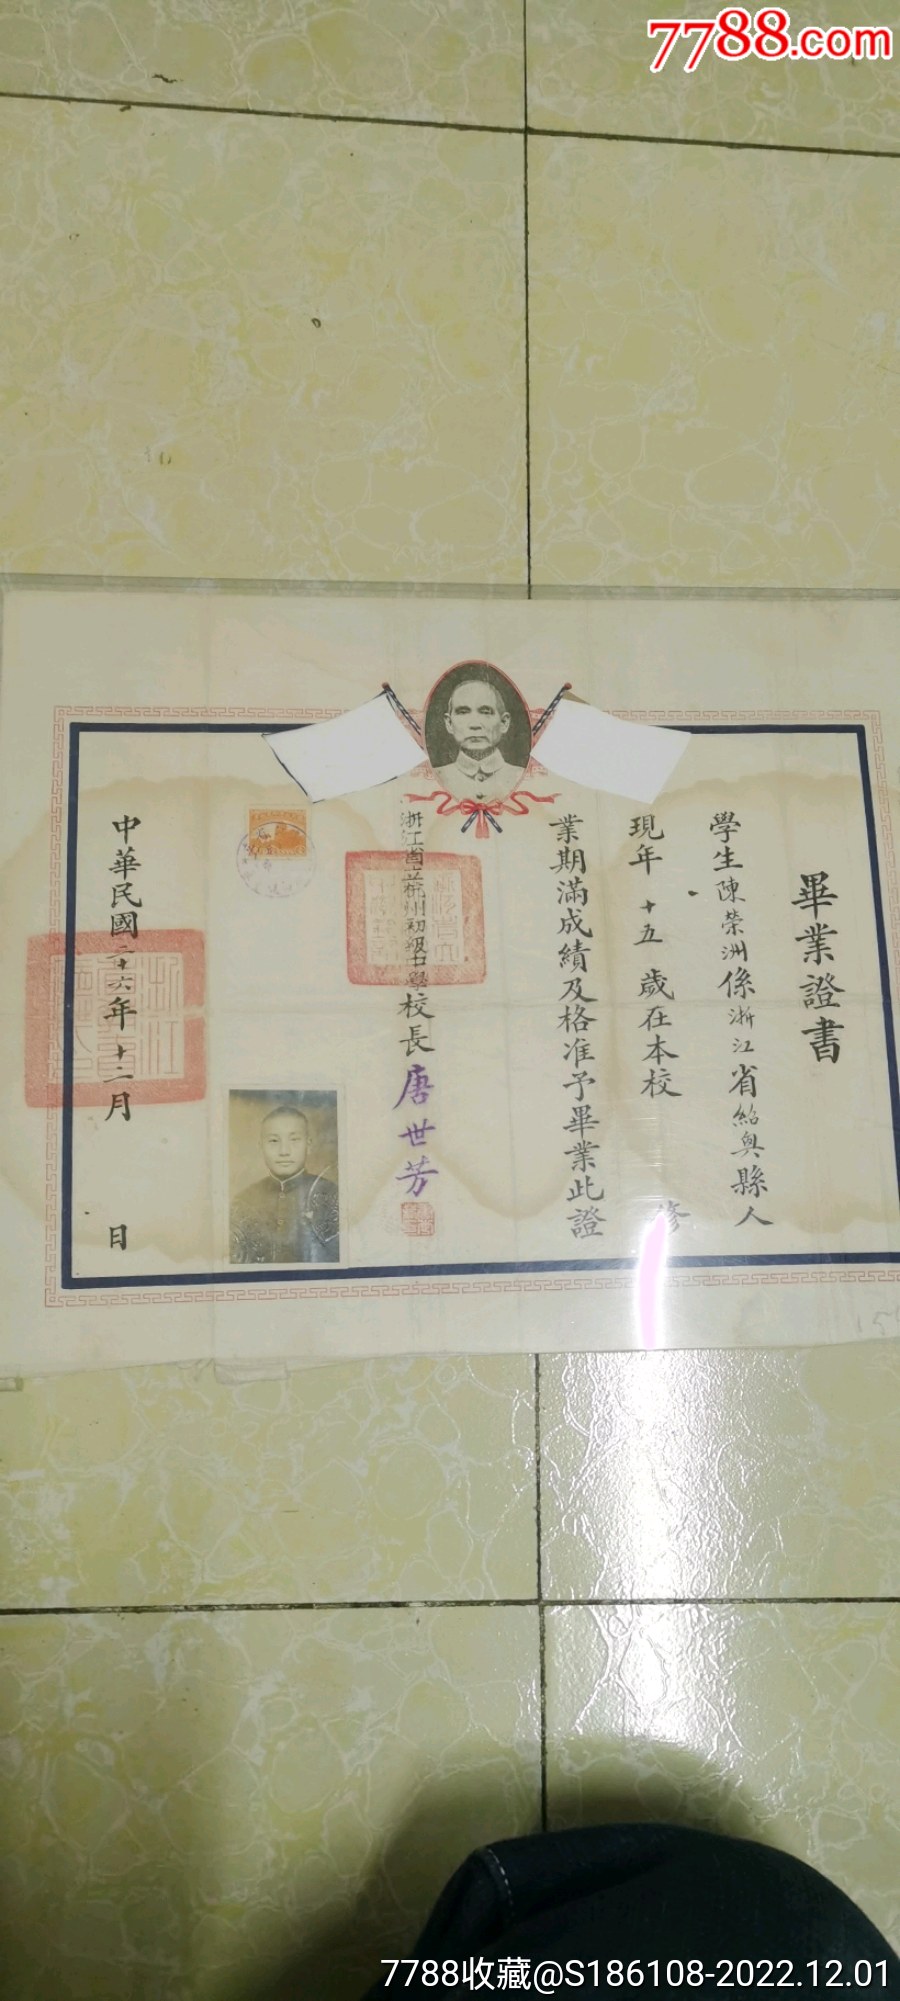 7788.com
畢業證書
學生陳榮洲係浙江省紹興縣人
現年十五歲在本校
修
業期滿成績及格准予畢業此證
浙江省立杭州初級中學校長唐世芳
中華民國二十六年十二月
日
7788收藏@S186108-2022.12.01